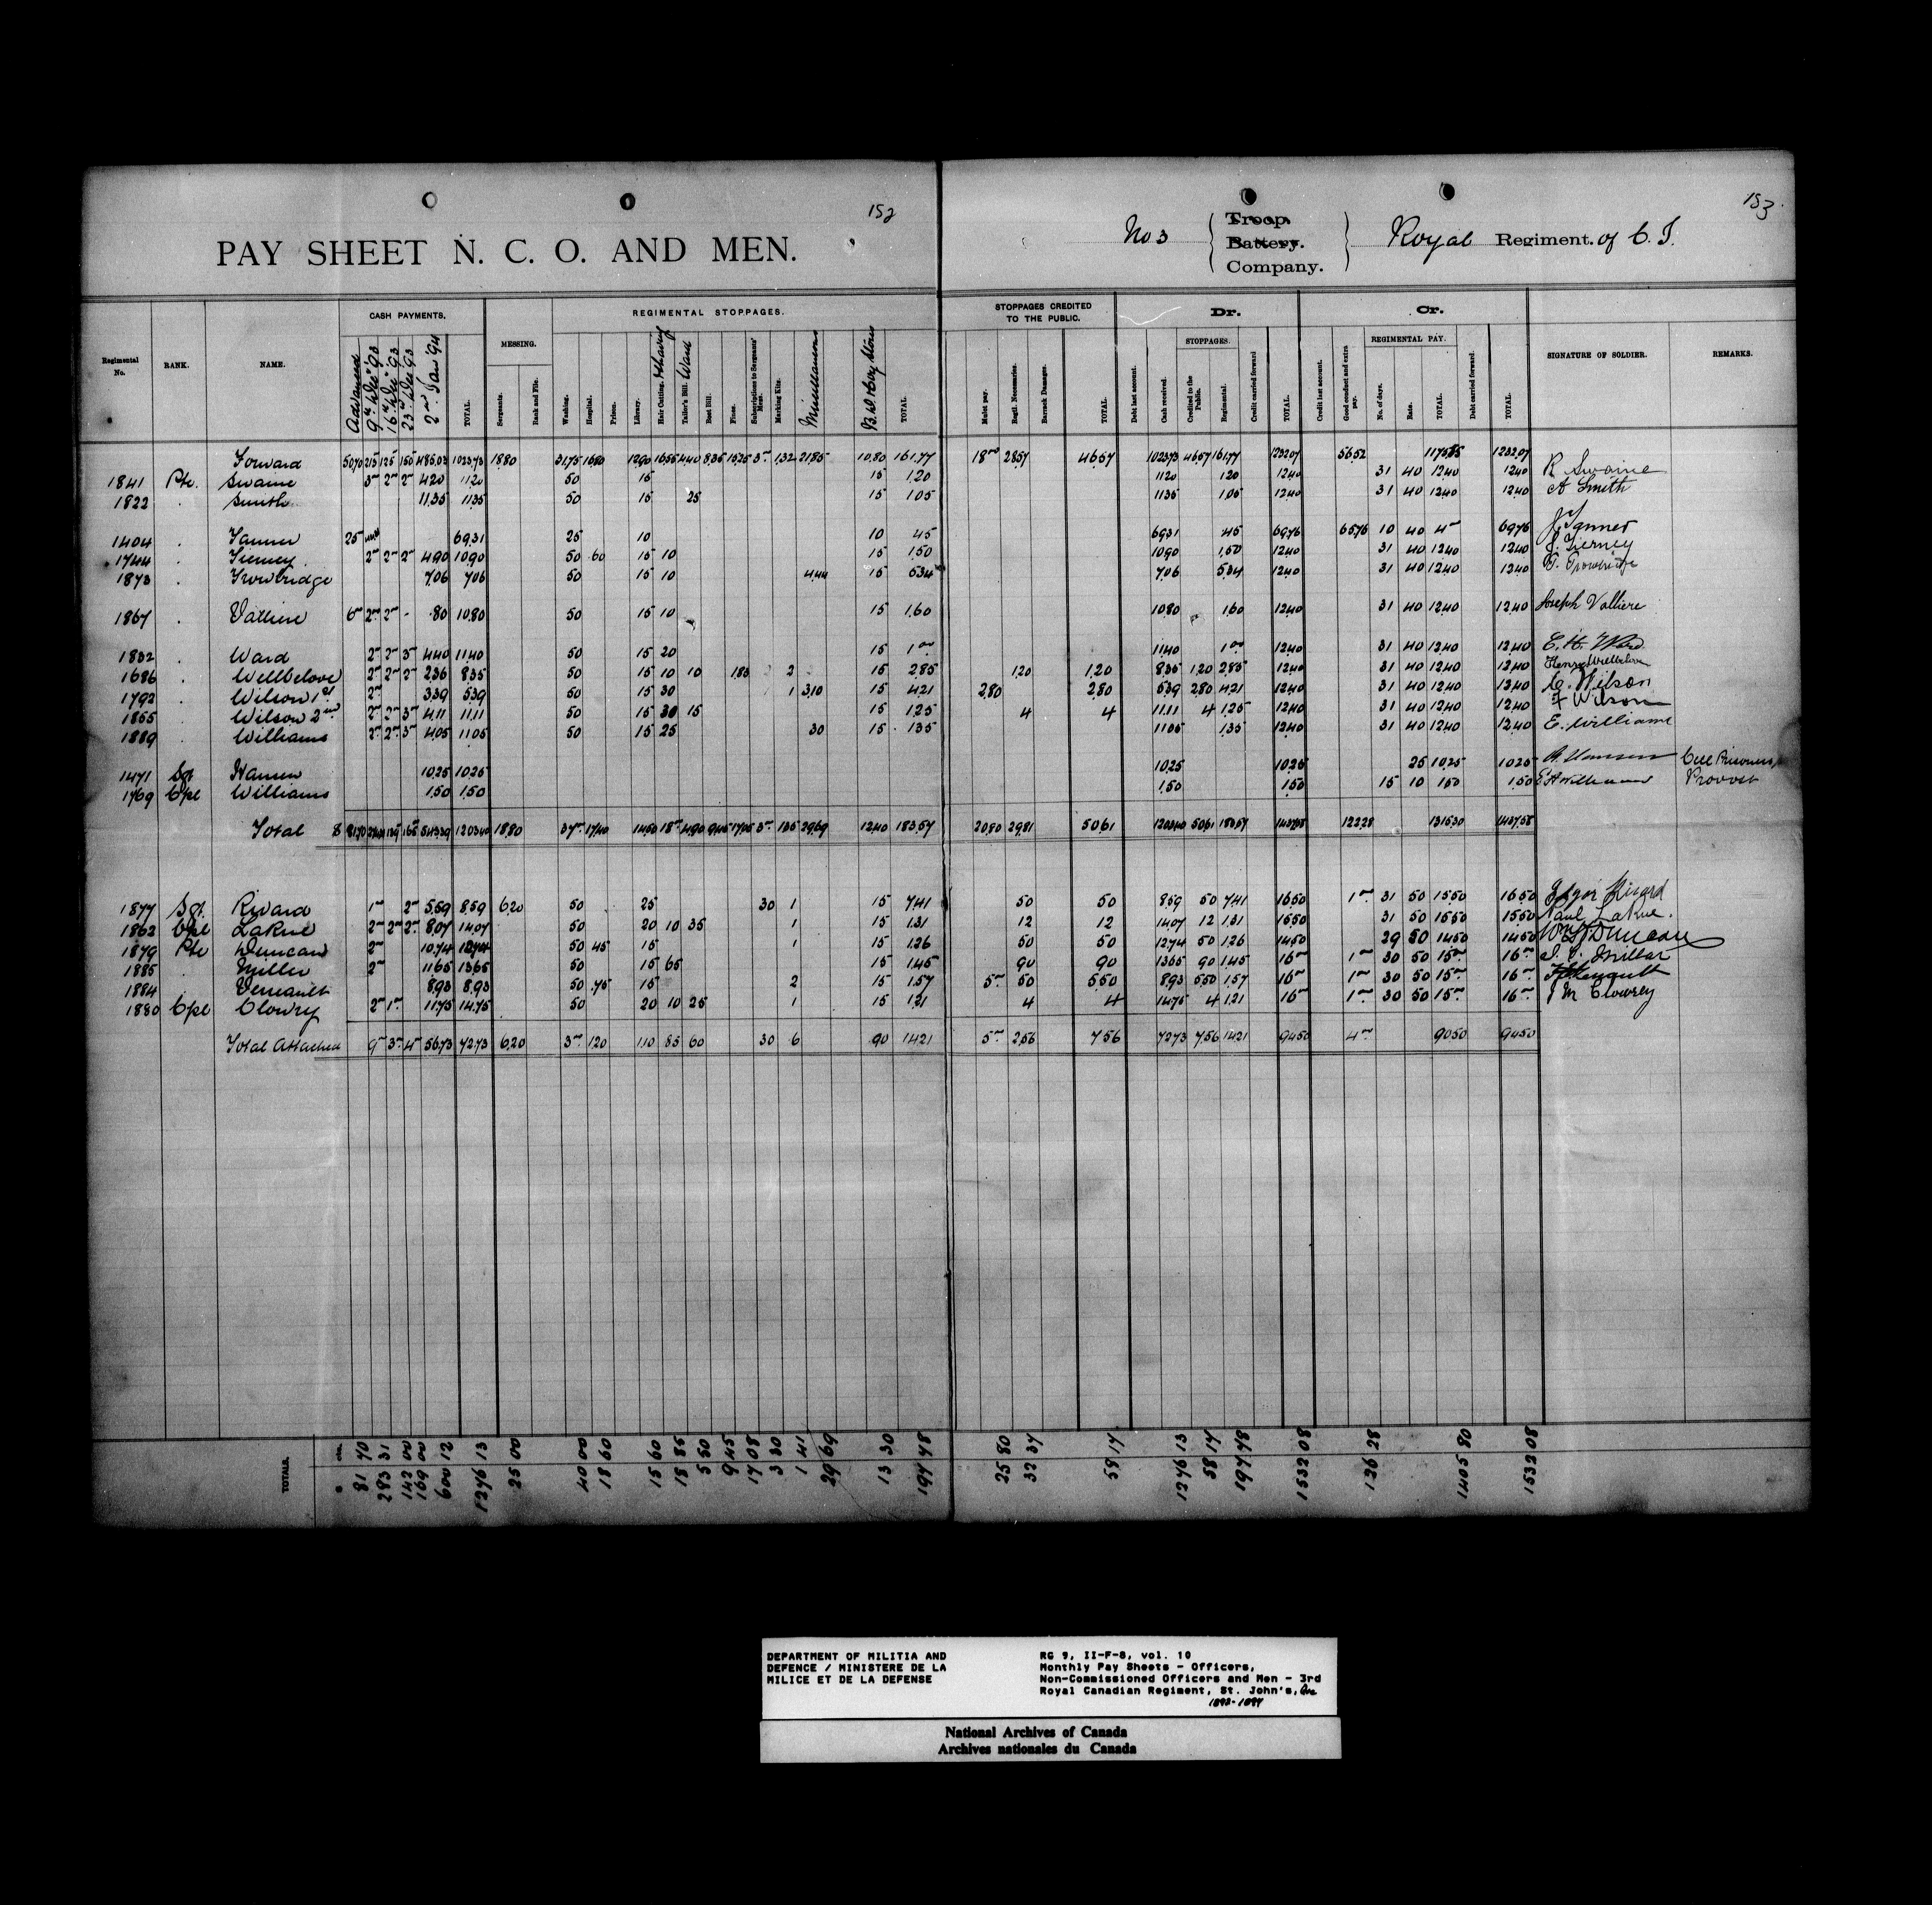 152
PAY SHEET N. C. O. AND MEN.
153
No 3 { Troop. Battery. Company. } Royal Regiment. of C. I.
Regimental No. RANK. NAME. CASH PAYMENTS. MESSING. REGIMENTAL STOPPAGES.
Advanced 9th Dec '93 16th Dec '93 23rd Dec 93 2nd Jan '94 TOTAL. Sergeants. Rank and File. Washing. Hospital. Prison. Library. Hair Cutting. & Shaving Tailor's Bill. Ward Boot Bill. Fines. Subscriptions to Sergeants' Mess. Marking Kits. Miscellaneous TOTAL.
STOPPAGES CREDITED TO THE PUBLIC. Dr. Cr. SIGNATURE OF SOLDIER. REMARKS.
Mulct pay. Regtl. Necessaries. Barrack Damages. TOTAL Debt last account. Cash received. STOPPAGES. Credited to the Public. Regimental. Credit carried forward TOTAL. Credit last account. Good conduct and extra pay. REGIMENTAL PAY. No. of days. Rate. TOTAL. Debt carried forward. TOTAL.
Forward 5070 215 125 150 48503 102373 1880 3175 1680 1290 1655 440 835 1525 3 132 2185 1080 16177 18 2857 4657 102373 4657 16177 123207 5652 117555 123207
1841 Pte. Swaine 3 2 2 420 1120 50 15 15 120 1120 120 1240 31 40 1240 1240 R Swaine
1822 . Smith 1135 1135 50 15 25 15 105 1135 105 1240 31 40 1240 1240 A Smith
1404 . Tanner 25 6931 25 10 10 45 6931 45 6976 6576 10 40 4 6976 J Tanner
1744 . Tierney 2 2 2 490 1090 50 60 15 10 15 150 1090 150 1240 31 40 1240 1240 J. Tierney
1873 . Trowbridge 706 706 50 15 10 444 15 534 706 534 1240 31 40 1240 1240 Trowbridge
1867 . Valliere 6 2 2 - 80 1080 50 15 10 15 160 1080 160 1240 31 40 1240 1240 Joseph Valliere
1832 . Ward 2 2 3 440 1140 50 15 20 15 1 1140 1 1240 31 40 1240 1240 E. H. Ward
1686 . Wellbelove 2 2 2 236 835 50 15 10 10 183 2 15 285 120 120 835 120 285 1240 31 40 1240 1240 Henry Wellbelove
1792 . Wilson 1st 2 339 539 50 15 30 1 310 15 421 280 280 539 280 421 1240 31 40 1240 1240 C. Wilson
1855 . Wilson 2nd 2 2 3 411 1111 50 15 30 15 15 125 4 4 1111 4 125 1240 31 40 1240 1240 F Wilson
1889 . Williams 2 2 3 405 1105 50 15 25 30 15 135 1105 135 1240 31 40 1240 1240 E. Williams
1471 Sgt Hansen 1025 1025 1025 1025 25 1025 1025 Hansen Cell Prisoners
1769 Cpl Williams 150 150 150 150 15 10 150 150 Williams Provost
Total 54339 120340 1880 37 1740 1450 18 490 945 1708 3 135 2969 1240 18357 2080 2981 5061 120340 5061 18357 143758 12228 131530 143758
1877 Sgt. Rivard 1 2 559 859 620 50 25 30 1 15 741 50 50 859 50 741 1650 1 31 50 1550 1650 Rivard
1862 Cpl LaRue 2 2 2 807 1407 50 20 10 35 1 15 131 12 12 1407 12 131 1550 31 50 1550 1550 Paul LaRue.
1879 Pte Duncan 2 1074 1274 50 45 15 1 15 126 50 50 1274 50 126 1450 29 50 1450 1450 Duncan
1885 . Miller 2 1165 1365 50 15 65 15 145 90 90 1365 90 145 16 1 30 50 15 16 Millar
1884 . Verreault 893 893 50 75 15 2 15 157 5 50 550 893 550 157 16 1 30 50 15 16
1880 Cpl Clowry 2 1 1175 1475 50 20 10 25 1 15 121 4 4 1475 4 121 16 1 30 50 15 16 J M Clowrey
Total Attached 9 3 4 5673 7273 620 3 120 110 85 60 30 6 90 1421 5 256 756 7273 756 1421 9450 4 9050 9450
TOTALS. $ cts. 81 70 293 31 142 00 169 00 600 12 1276 13 25 00 40 00 18 60 15 60 18 85 5 50 9 45 17 08 3 30 1 41 29 69 13 30 197 78 25 80 32 37 58 17 1276 13 58 17 197 78 1532 08 126 28 1405 80 1532 08
DEPARTMENT OF MILITIA AND
DEFENCE / MINISTERE DE LA
MILICE ET DE LA DEFENSE
RG 9, II-F-8, vol. 10
Monthly Pay Sheets - Officers,
Non-Commissioned Officers and Men - 3rd
Royal Canadian Regiment, St. John's, Que
1893-1894
National Archives of Canada
Archives nationales du Canada